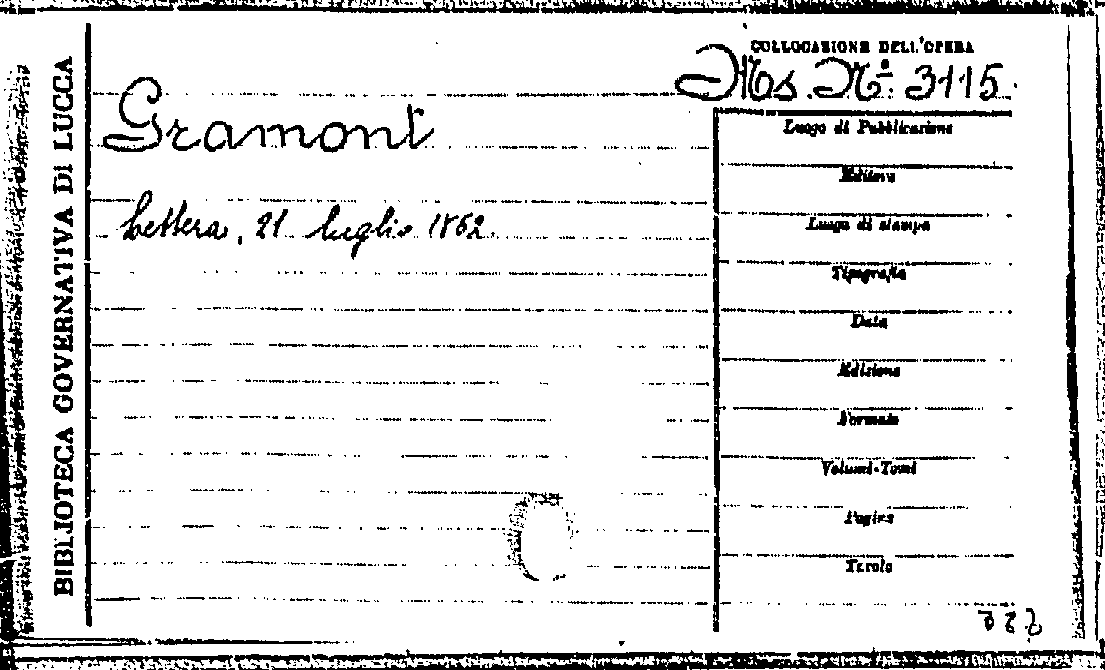 BIBLIOTECA GOVERNATIVA DI LUCCA
COLLOCAZIONE DELL'OPERA
Ms. N.º 3115.
Gramont
Lettera, 21 luglio 1862.
Luogo di Pubblicazione
Editore
Luogo di stampa
Tipografia
Data
Edizione
Formato
Volumi-Tomi
Pagine
Tavole